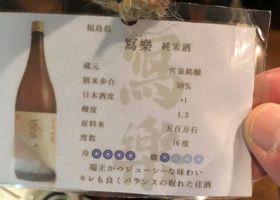 福島県
寫樂 純米酒
蔵元 宮泉銘醸
精米歩合 50%
日本酒度 +1
酸度 1,3
原料米 五百万石
度数 16度
冷◎◎◎◎ 燗◎
端正かつジューシーな味わい
キレも良くバランスの取れた佳酒
寫樂